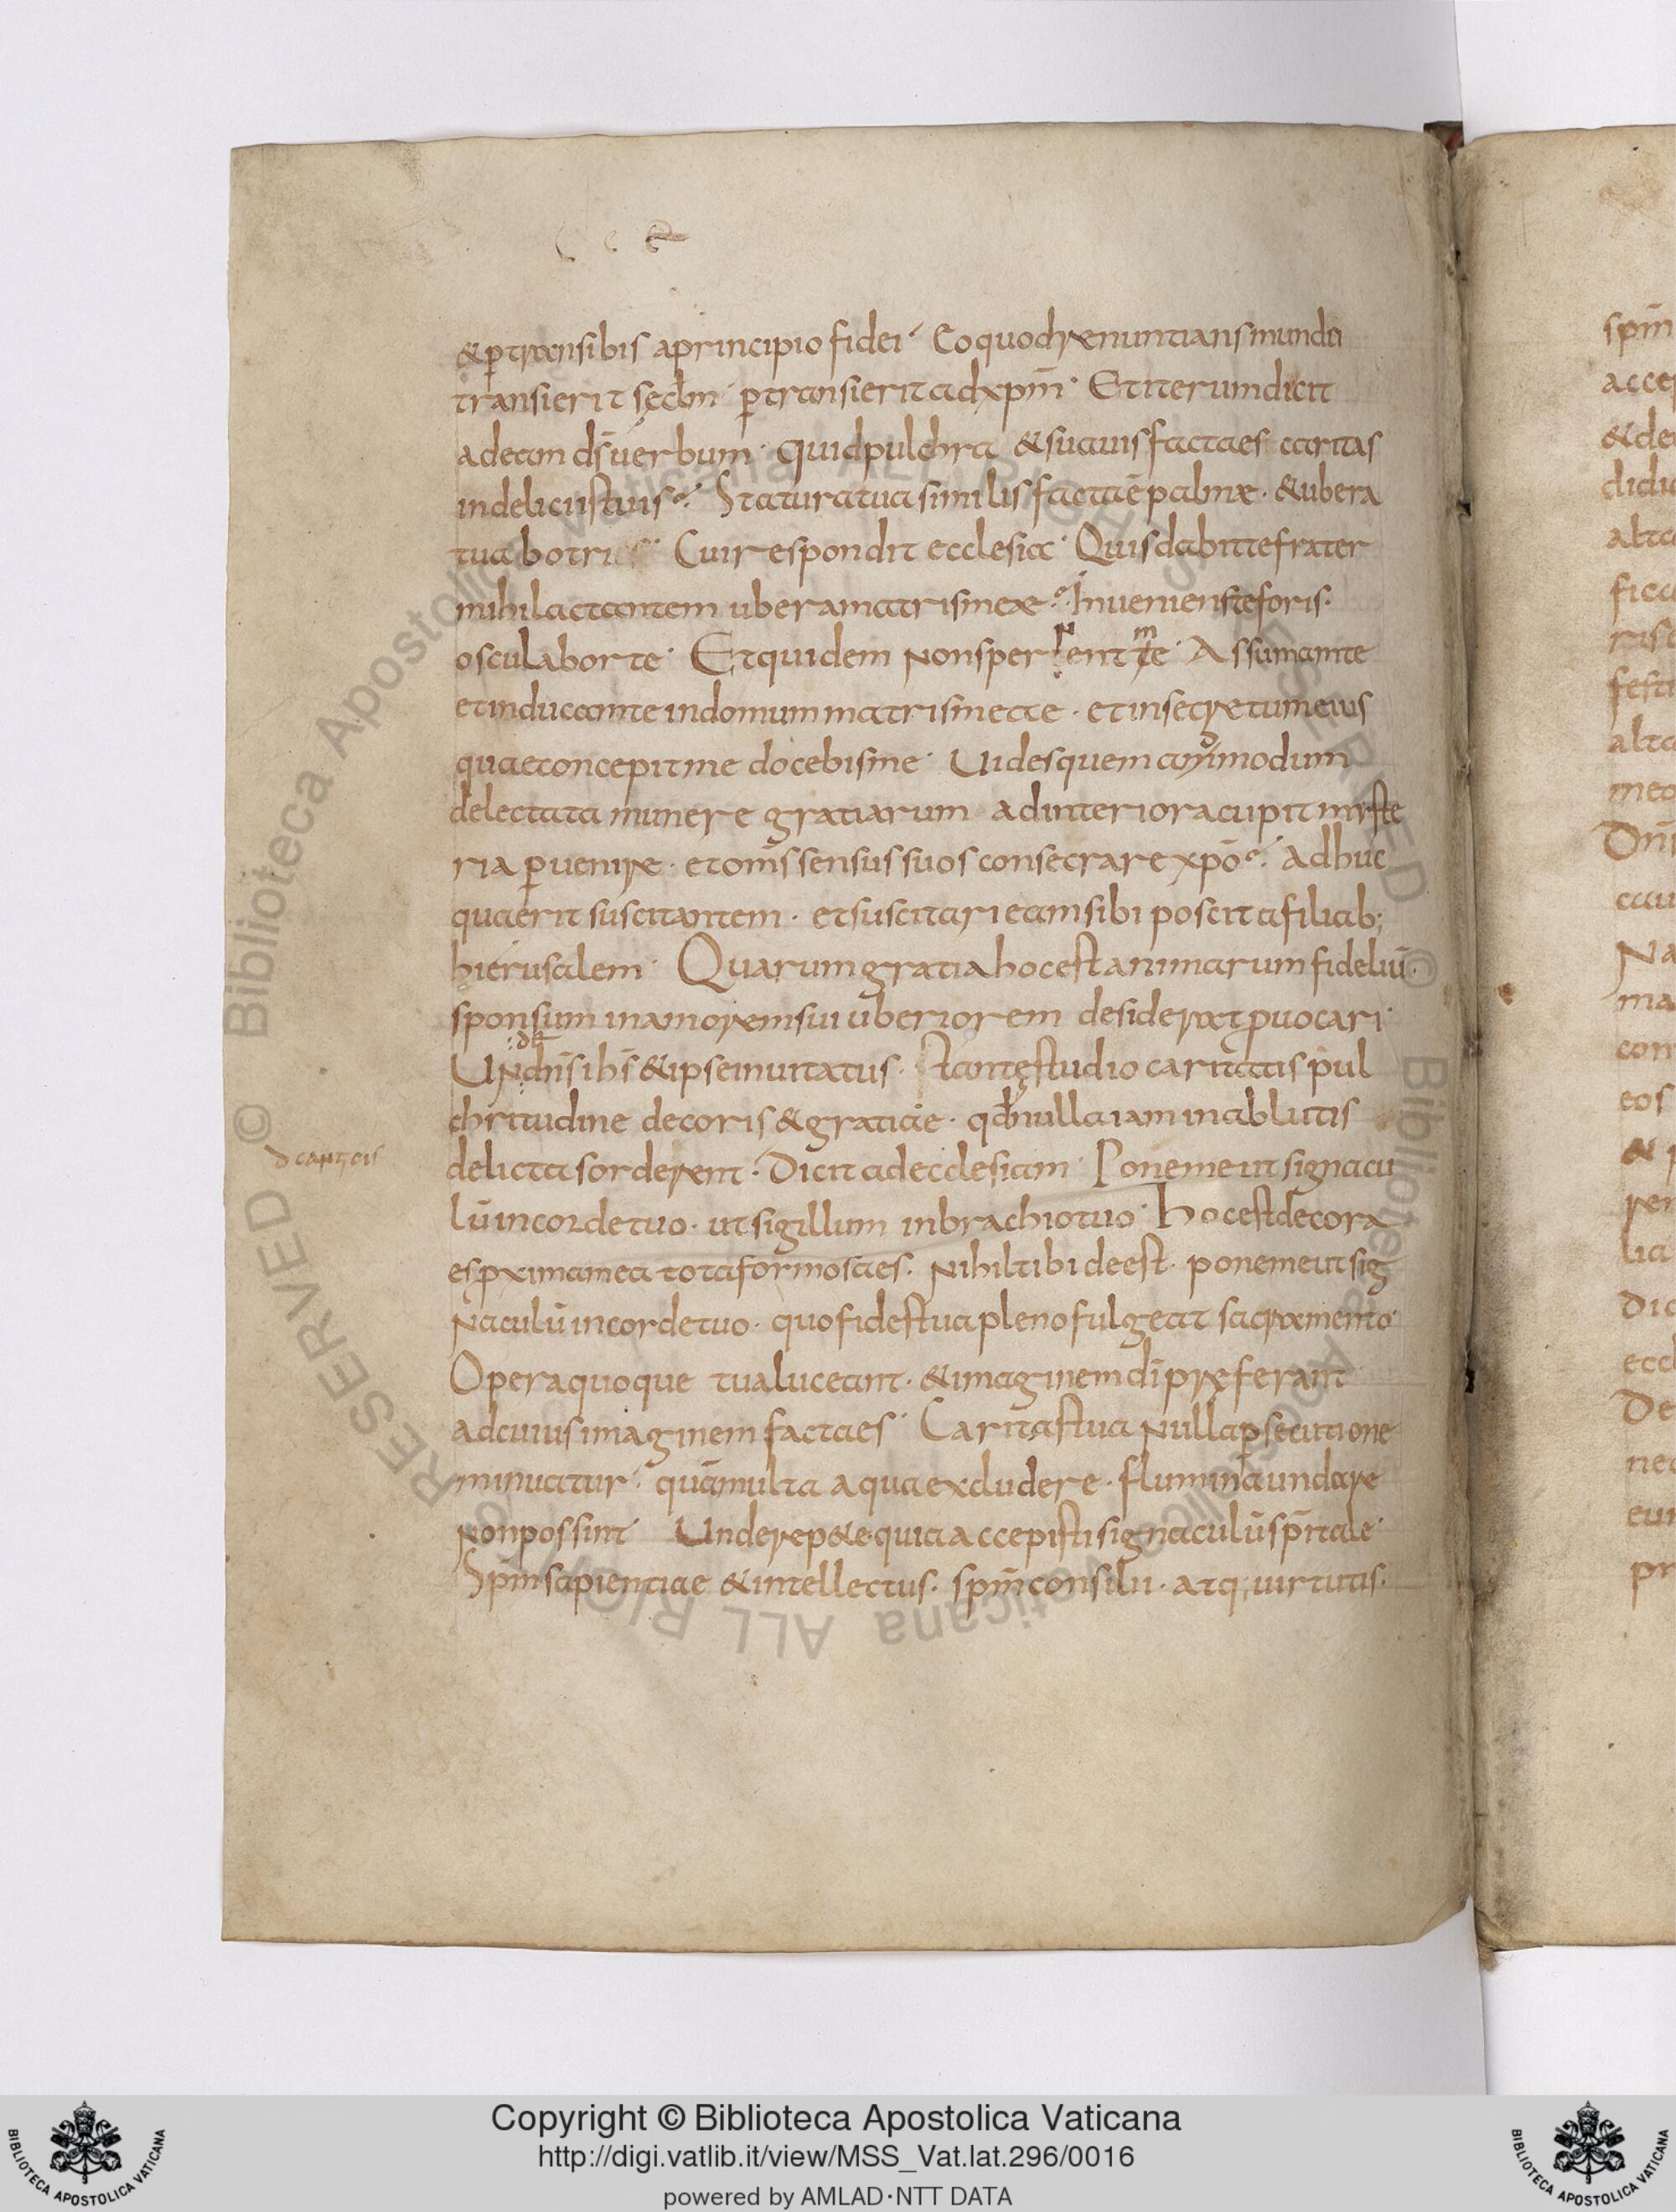 &ꝑtransibis aprincipio fidei· Eo quod renuntians mundo
transierit sęclm· ꝑtransierit ad xpm̄· Et iterum dicit
ad eam ds̄ uerbum· quid pulchra & suauis facta es caritas
in deliciis tuis· Statura tua similis facta ē palmæ· & ubera
tua botri Cui respondit ecclesia· Quis dabit te frater
mihi lactantem ubera matris meæ· Inueniens te foris·
osculabor te· Et quidem non spernent me· Assumam te
et inducam te in domum matris meae· et in secretum eius
quae concepit me docebis me· Uides quem ammodum
delectata munere gratiarum ad interiora cupit myste
ria ꝑuenire· et om̄s sensus suos consecrare xpō· adhuc
quaerit suscitantem· et suscitari eam sibi poscit a filiab;
hierusalem· Quarum gratia hoc est animarum fideliū·
sponsum in amorem sui uberiorem desiderat ꝓuocari·
Unde dn̄s ihs̄ & ipse inuitatus· tantę studio caritatis pul
chritudine decoris & gratiae· qd nulla iam in ablutis
delicta sorderent· Dicit ad ecclesiam· Pone me ut signacu
d canticis
lū in corde tuo· ut sigillum in brachio tuo· hoc est decora
es ꝓxima mea tota formosa es· Nihil tibi deest· pone me ut sig
naculū in corde tuo· quo fides tua pleno fulgeat sacramento·
Opera quoque tua luceant· & imaginem dī pręferant
ad cuius imaginem facta es· Caritas tua nulla ꝑsecutione
minuatur· quā multa aqua excludere· flumina undare
non possint· Unde repete quia accepisti signaculū spīritale·
Spm̄ sapientiae & intellectus· spm̄ consilii· atq; uirtutis·
Copyright © Biblioteca Apostolica Vaticana
http://digi.vatlib.it/view/MSS_Vat.lat.296/0016
powered by AMLAD·NTT DATA
BIBLIOTECA APOSTOLICA VATICANA
BIBLIOTECA APOSTOLICA VATICANA